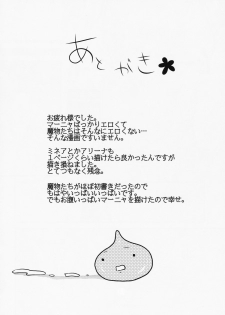 あとがき
お疲れ様でした。
マーニャばっかりエロくて
魔物たちはそんなにエロくない…
そんな漫画ですいません。
ミネアとかアリーナも
1ページくらい描けたら良かったんですが
描き兼ねました。
とてつもなく残念。
魔物たちがほぼ初書きだったので
もはやいっぱいいっぱいです。
でもお腹いっぱいマーニャを描けたので幸せ。